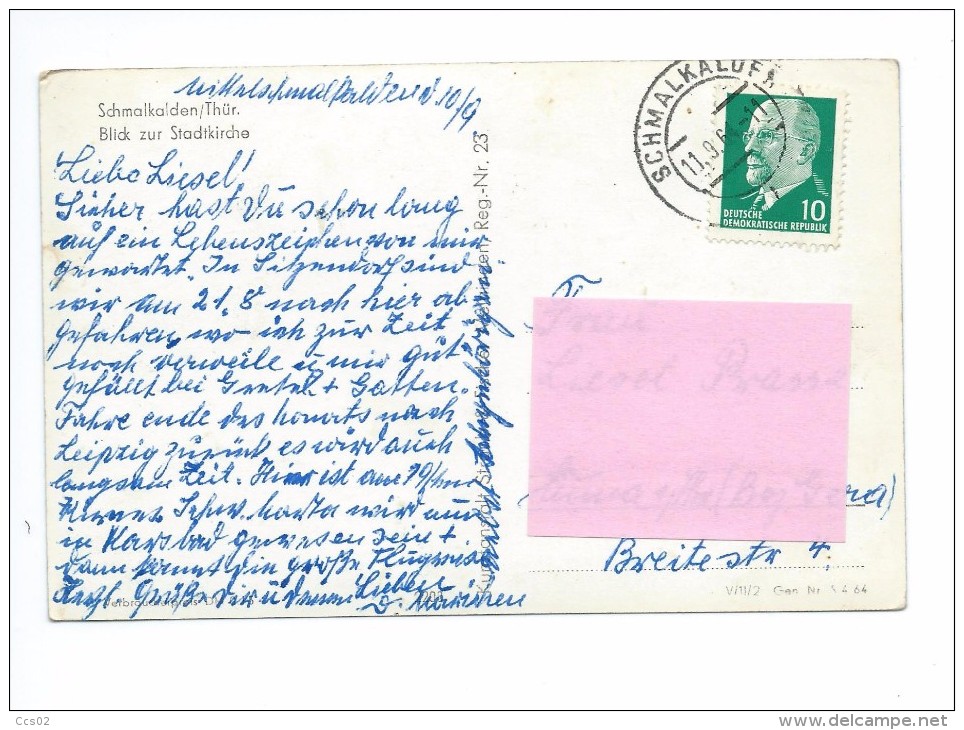 Mittelschmalkalden d 10/9
Schmalkalden/Thür.
Blick zur Stadtkirche
Liebe Liesel!
Sicher hast Du schon lang
auf ein Lebenszeichen von mir
gewartet. In Sitzendorf sind
wir am 21.8 nach hier ab-
gefahren, wo ich zur Zeit
noch verweile u mir gut
gefällt bei Gretel + Gatten.
Fahre ende des Monats nach
Leipzig zurück es wird auch
langsam Zeit. Hier ist am 19/
wird nun
in Karsbad gewesen sein +
dann kommt die große Flugreise
Herzl Grüße dir u deinen Lieben
D. Mariechen
Reg.-Nr. 23
SCHMALKALDEN
11.9.64-11
10
DEUTSCHE
DEMOKRATISCHE REPUBLIK
Frau
Gera)
Breitestr 4.
V/11/2 Gen Nr 64
Ccs02
delcampe.net